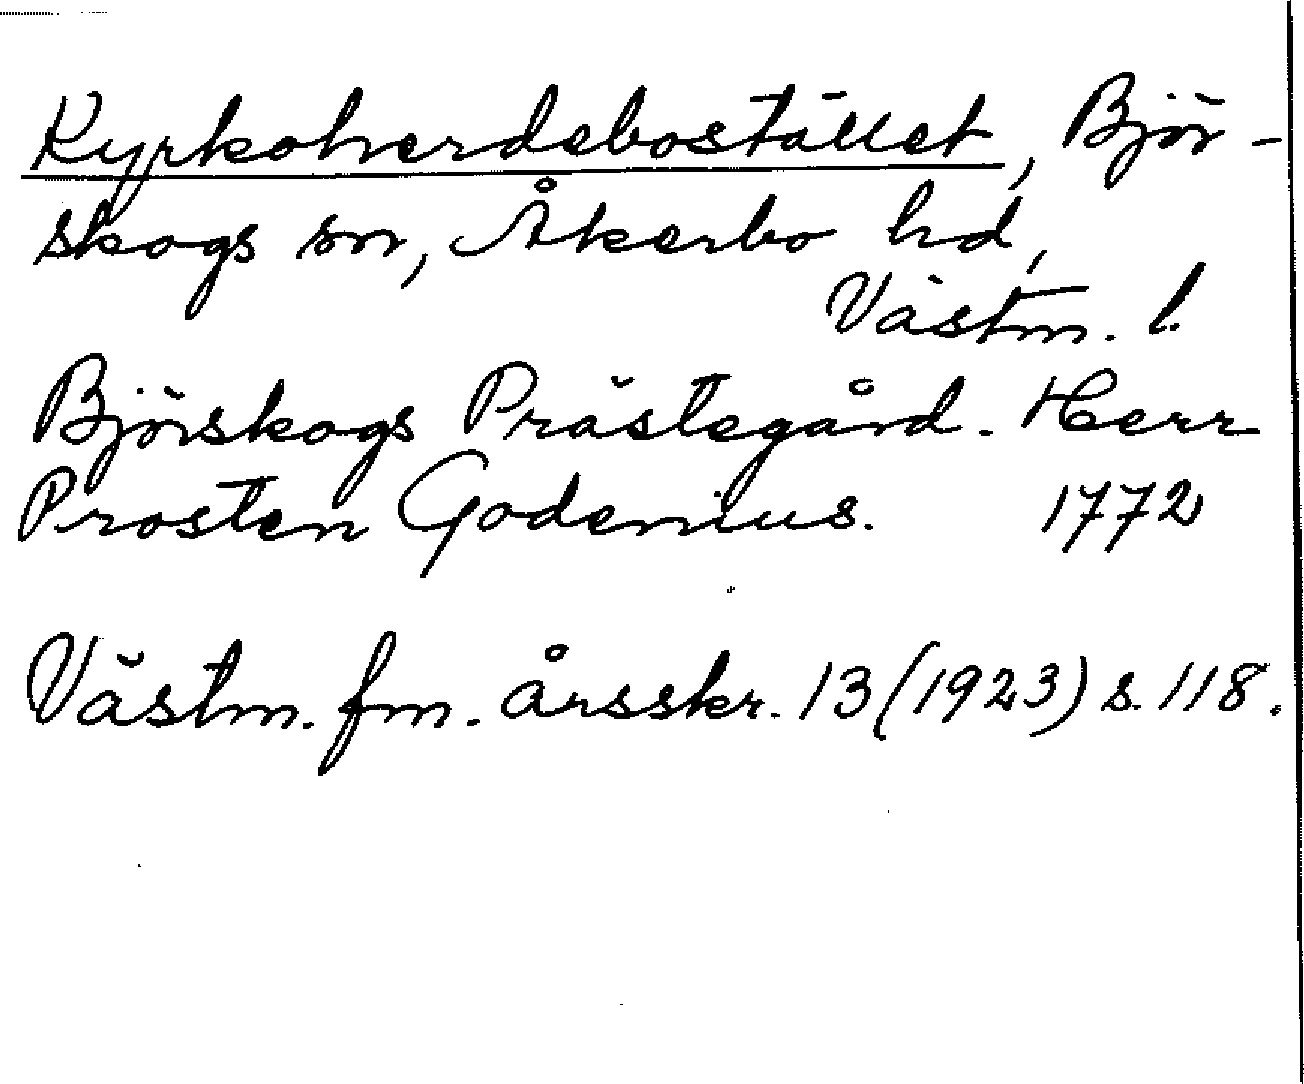 Kyrkoherdebostället, Björ-
skogs sn, Åkerbo hd,
Västm. l.
Björskogs Prästegård. Herr
Prosten Godenius. 1772
Västm. fm. årsskr. 13 (1923) s. 118.